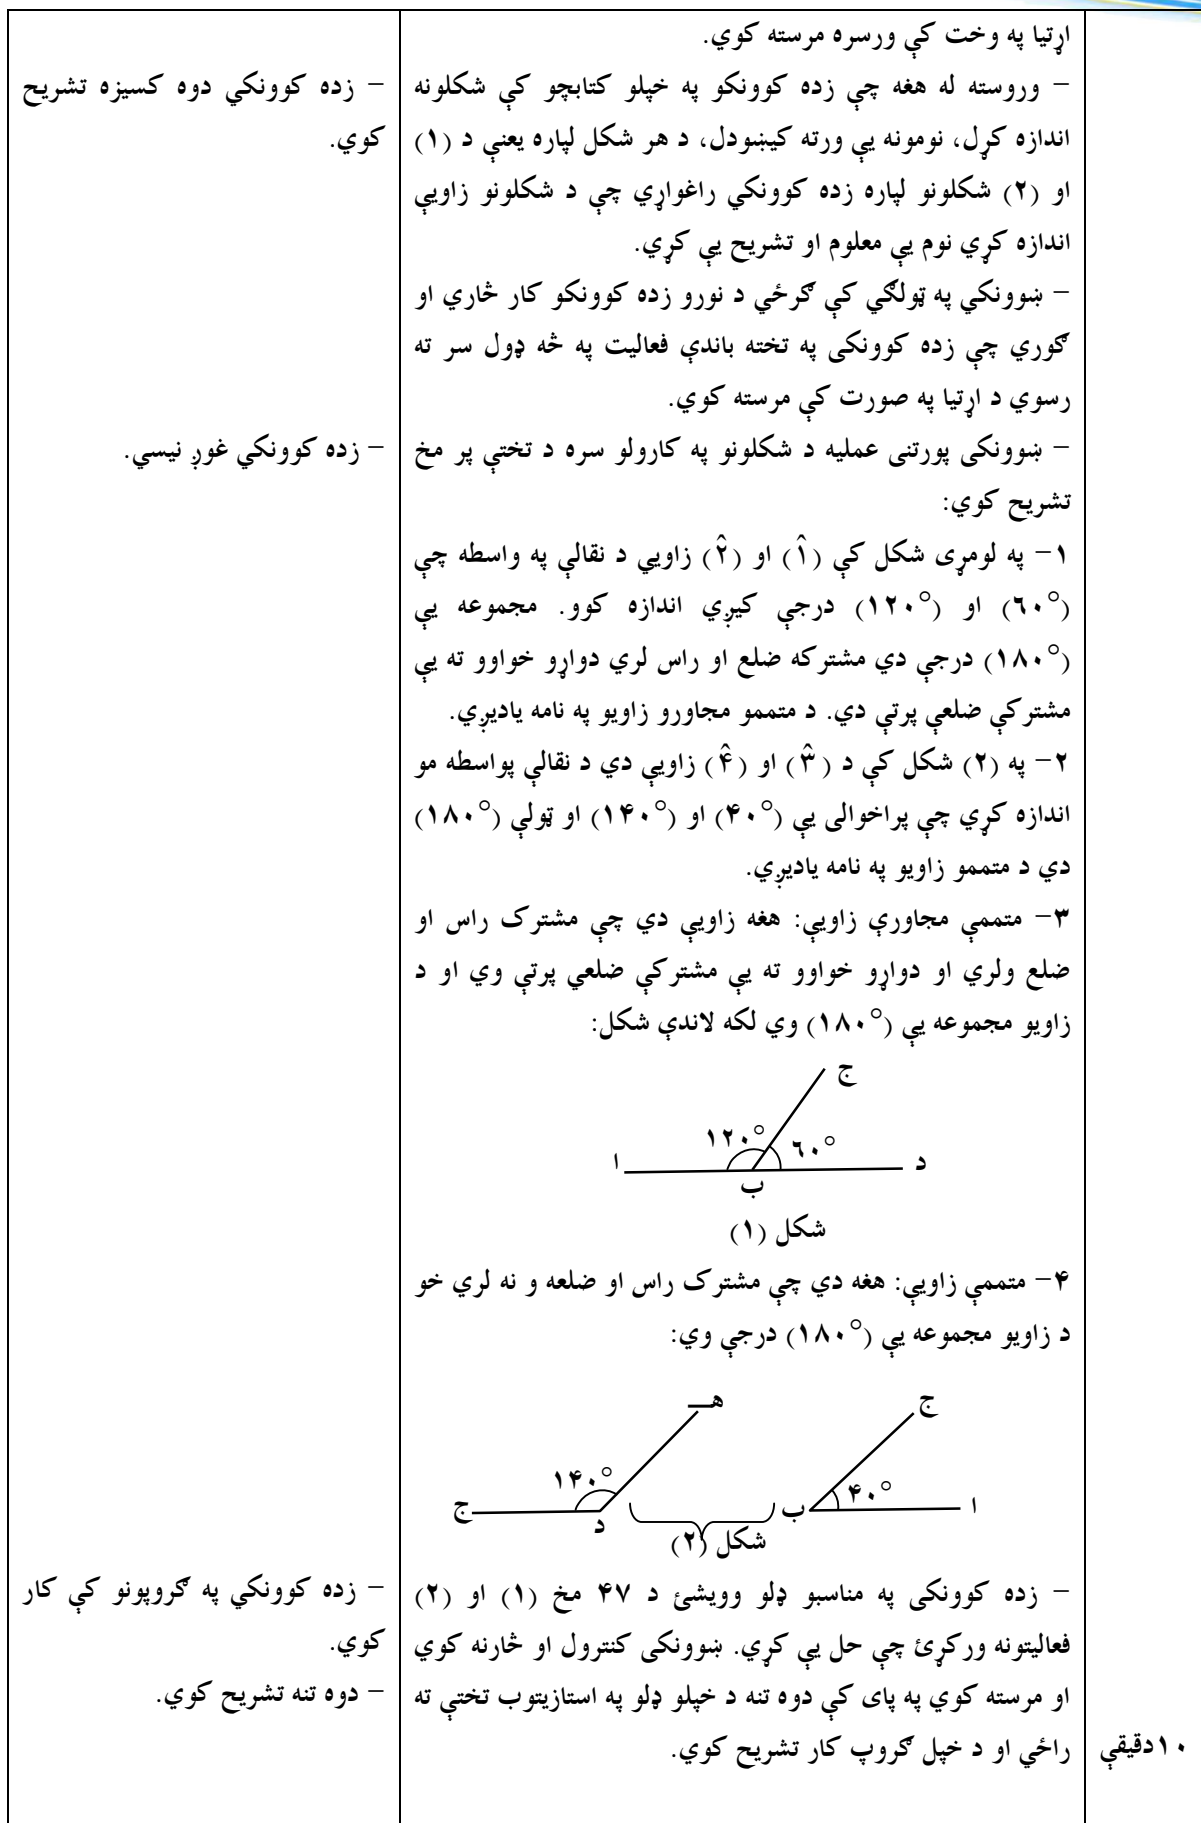 اړتيا په وخت کې ورسره مرسته کوي.
– وروسته له هغه چې زده کوونکو په خپلو کتابچو کې شکلونه
اندازه کړل، نومونه يې ورته کيښودل، د هر شکل لپاره يعنې د (۱)
او (۲) شکلونو لپاره زده کوونکي راغواړي چې د شکلونو زاويې
اندازه کړي نوم يې معلوم او تشريح يې کړي.
– ښوونکي په ټولګي کې ګرځي د نورو زده کوونکو کار څاري او
ګوري چې زده کوونکی په تخته باندې فعاليت په څه ډول سر ته
رسوي د اړتيا په صورت کې مرسته کوي.
– ښوونکی پورتنی عمليه د شکلونو په کارولو سره د تختې پر مخ
تشريح کوي:
۱– په لومړی شکل کې (۱̂) او (۲̂) زاويي د نقالې په واسطه چې
(٦۰°) او (۱۲۰°) درجې کيږي اندازه کوو. مجموعه يې
(۱۸۰°) درجې دي مشترکه ضلع او راس لري دواړو خواوو ته يې
مشترکې ضلعې پرتې دي. د متممو مجاورو زاويو په نامه ياديږي.
۲– په (۲) شکل کې د (۳̂) او (۴̂) زاويې دي د نقالې پواسطه مو
اندازه کړي چې پراخوالی يې (۴۰°) او (۱۴۰°) او ټولې (۱۸۰°)
دي د متممو زاويو په نامه ياديږي.
۳– متممې مجاورې زاويې: هغه زاويې دي چې مشترک راس او
ضلع ولري او دواړو خواوو ته يې مشترکې ضلعې پرتې وي او د
زاويو مجموعه يې (۱۸۰°) وي لکه لاندې شکل:
ج
۱۲۰° ٦۰°
د ا
ب
شکل (۱)
۴– متممې زاويې: هغه دي چې مشترک راس او ضلعه و نه لري خو
د زاويو مجموعه يې (۱۸۰°) درجې وي:
ج هـ
۴۰° ۱۴۰°
ا ب د ج
شکل (۲)
– زده کوونکی په مناسبو ډلو وويشئ د ۴۷ مخ (۱) او (۲)
فعاليتونه ورکړئ چې حل يې کړي. ښوونکی کنترول او څارنه کوي
او مرسته کوي په پای کې دوه تنه د خپلو ډلو په استازيتوب تختې ته
راځي او د خپل ګروپ کار تشريح کوي.
– زده کوونکي دوه کسيزه تشريح
کوي.
– زده کوونکي غوږ نيسي.
– زده کوونکي په ګروپونو کې کار
کوي.
– دوه تنه تشريح کوي.
۱۰دقيقې